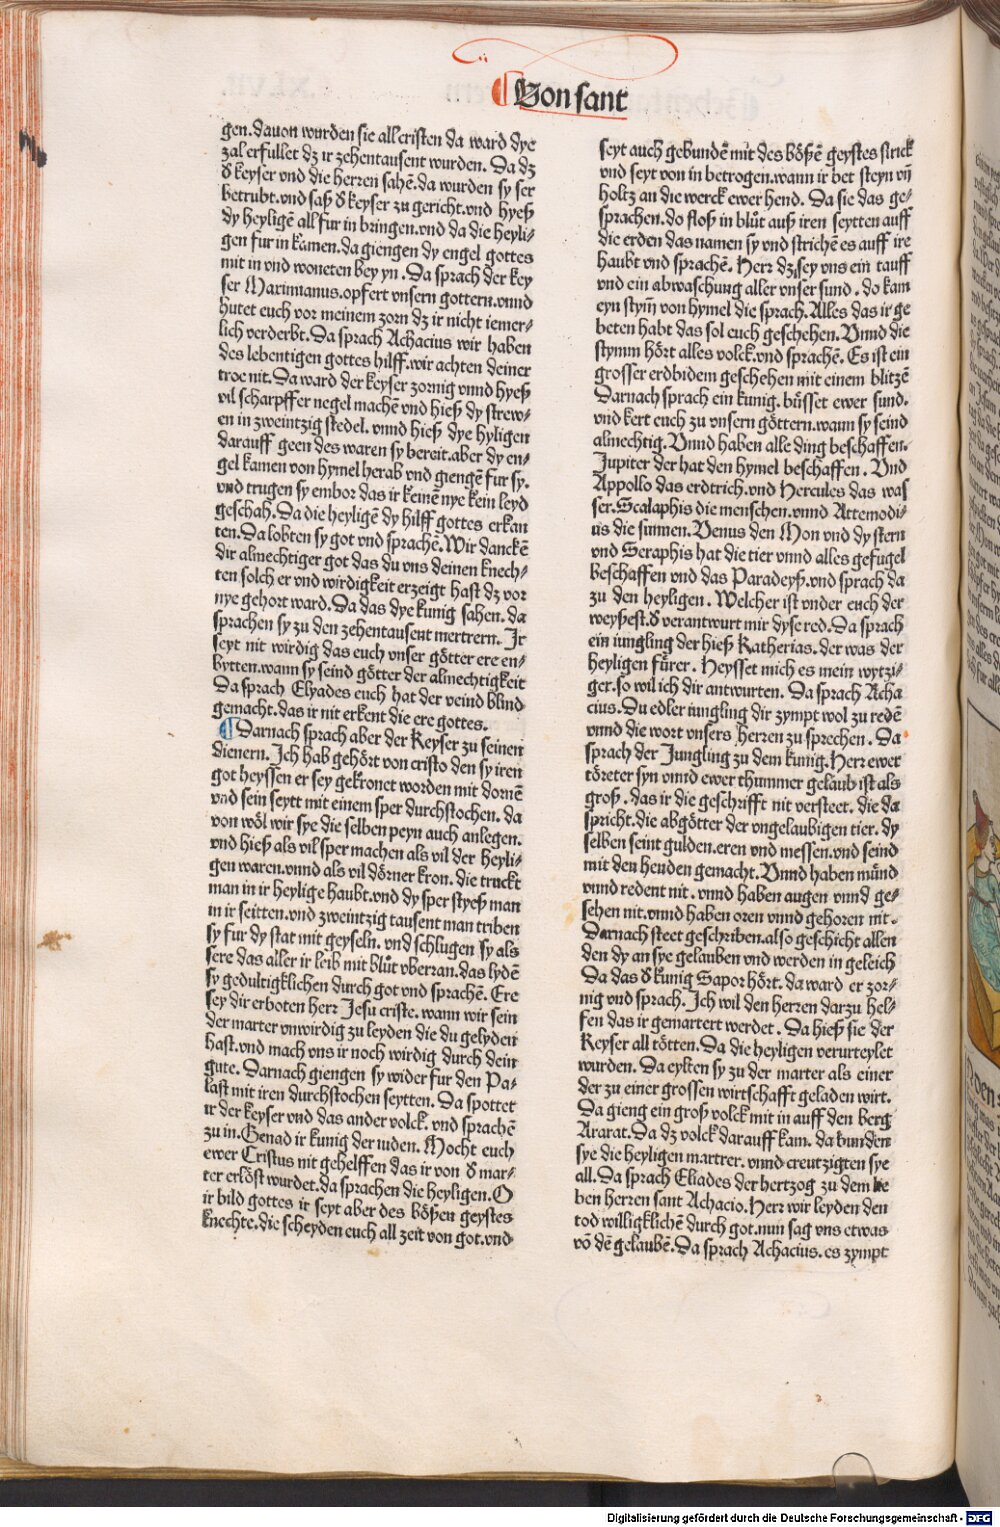 Von sant
gen. dauon wurden sie all cristen da ward dye
zal erfullet dz ir zehentausent wurden. Da dz
d̕ keyser vnd die herren sahē. da wurden sy ser
betrubt. vnd saß d̕ keyser zu gericht. vnd hyeß
dy heyligē all fur in bringen. vnd da die heyli⸗
gen fur in kamen. da giengen dy engel gottes
mit in vnd woneten bey yn. Da sprach der key
ser Maximianus. opfert vnsern gottern. vnnd
hutet euch vor meinem zorn dz ir nicht iemer⸗
lich verderbt. Da sprach Achacius wir haben
des lebentigen gottes hilff. wir achten deiner
troe nit. Da ward der keyser zornig vnnd hyeß
vil scharpffer negel machē vnd hieß dy strew⸗
en in zweintzig stedel. vnnd hieß dye hyligen
darauff geen des waren sy bereit. aber dy en⸗
gel kamen von hymel herab vnd giengē fur sy.
vnd trugen sy embor das ir keinē nye kein leyd
geschah. Da die heyligē dy hilff gottes erkan
ten. Da lobten sy got vnd sprachē. Wir danckē
dir almechtiger got das du vns deinen knech⸗
ten solch er vnd wirdigkeit erzeigt hast dz vor
nye gehort ward. Da das dye kunig sahen. da
sprachen sy zu den zehentausent mertrern. Ir
seyt nit wirdig das euch vnser götter ere en⸗
bytten. wann sy seind götter der almechtigkeit
Da sprach Elyades euch hat der veind blind
gemacht. das ir nit erkent die ere gottes.
Darnach sprach aber der Keyser zu seinen
dienern. Ich hab gehört von cristo den sy iren
got heyssen er sey gekronet worden mit dornē
vnd sein seytt mit einem sper durchstochen. da
von wöl wir sye die selben peyn auch anlegen.
vnd hieß als vil sper machen als vil der heyli⸗
gen waren. vnnd als vil dörner kron. die truckt
man in ir heylige haubt. vnd dy sper styeß man
in ir seitten. vnd zweintzig tausent man triben
sy fur dy stat mit geyseln. vnd schlugen sy als
sere das aller ir leib mit blůt vberran. das lydē
sy gedultigklichen durch got vnd sprachē. Ere
sey dir erboten herr Jesu criste. wann wir sein
der marter vnwirdig zu leyden die du gelyden
hast. vnd mach vns ir noch wirdig durch dein
gute. Darnach giengen sy wider fur den Pa⸗
last mit iren durchstochen seytten. Da spottet
ir der keyser vnd das ander volck. vnd sprachē
zu in. Genad ir kunig der iuden. Mocht euch
ewer Cristus nit gehelffen das ir von d̕ mar⸗
ter erlöst wurdet. da sprachen die heyligen. O
ir bild gottes ir seyt aber des bößen geystes
knechte. die scheyden euch all zeit von got. vnd
seyt auch gebundē mit des bößē geystes strick
vnd seyt von in betrogen. wann ir bet steyn vn̄
holtz an die werck ewer hend. Da sie das ge⸗
sprachen. do floß in blůt auß iren seytten auff
die erden das namen sy vnd strichē es auff ire
haubt vnd sprachē. Herr dz sey vns ein tauff
vnd ein abwaschung aller vnser sund. do kam
eyn stym̄ von hymel die sprach. Alles das ir ge
beten habt das sol euch geschehen. Vnnd die
stymm hört alles volck. vnd sprachē. Es ist ein
grosser erdbidem geschehen mit einem blitzē
Darnach sprach ein kunig. büsset ewer sund.
vnd kert euch zu vnsern göttern. wann sy seind
almechtig. Vnnd haben alle ding beschaffen.
Jupiter der hat den hymel beschaffen. Vnd
Appollo das erdtrich. vnd Hercules das was
ser. Scalaphis die menschen. vnnd Attemodi⸗
us die sinnen. Venus den Mon vnd dy stern
vnd Seraphis hat die tier vnnd alles gefugel
beschaffen vnd das Paradeyß. vnd sprach da
zu den heyligen. Welcher ist vnder euch der
weyßest. d̕ verantwurt mir dyse red. Da sprach
ein iungling der hieß Katherias. der was der
heyligen fürer. Heysset mich es mein wytzi⸗
ger. so wil ich dir antwurten. Da sprach Acha
cius. Du edler iungling dir zympt wol zu redē
vnnd die wort vnsers herren zu sprechen. Da
sprach der Jungling zu dem kunig. Herr ewer
töreter syn vnnd ewer thummer gelaub ist als
groß. das ir die geschrifft nit versteet. die da
spricht. die abgötter der vngelaubigen tier. dy
selben seint gulden. eren vnd messen. vnd seind
mit den henden gemacht. Vnnd haben mund
vnnd redent nit. vnnd haben augen vnnd ge⸗
sehen nit. vnnd haben oren vnnd gehoren nit.
Darnach steet geschriben. also geschicht allen
den dy an sye gelauben vnd werden in geleich
Da das d̕ kunig Sapor hört. da ward er zor⸗
nig vnd sprach. Ich wil den herren darzu hel⸗
fen das ir gemartert werdet. Da hieß sie der
Keyser all tötten. Da die heyligen verurteylet
wurden. Da eylten sy zu der marter als einer
der zu einer grossen wirtschafft geladen wirt.
Da gieng ein groß volck mit in auff den berg
Ararat. Da dz volck darauff kam. da bunden
sye die heyligen martrer. vnnd creutzigten sye
all. Da sprach Eliades der hertzog zu dem lie
ben herren sant Achacio. Herr wir leyden den
tod willigklichē durch got. nun sag vns etwas
vō dē gelaubē. Da sprach Achacius. es zympt
Digitalisierung gefördert durch die Deutsche Forschungsgemeinschaft - DFG